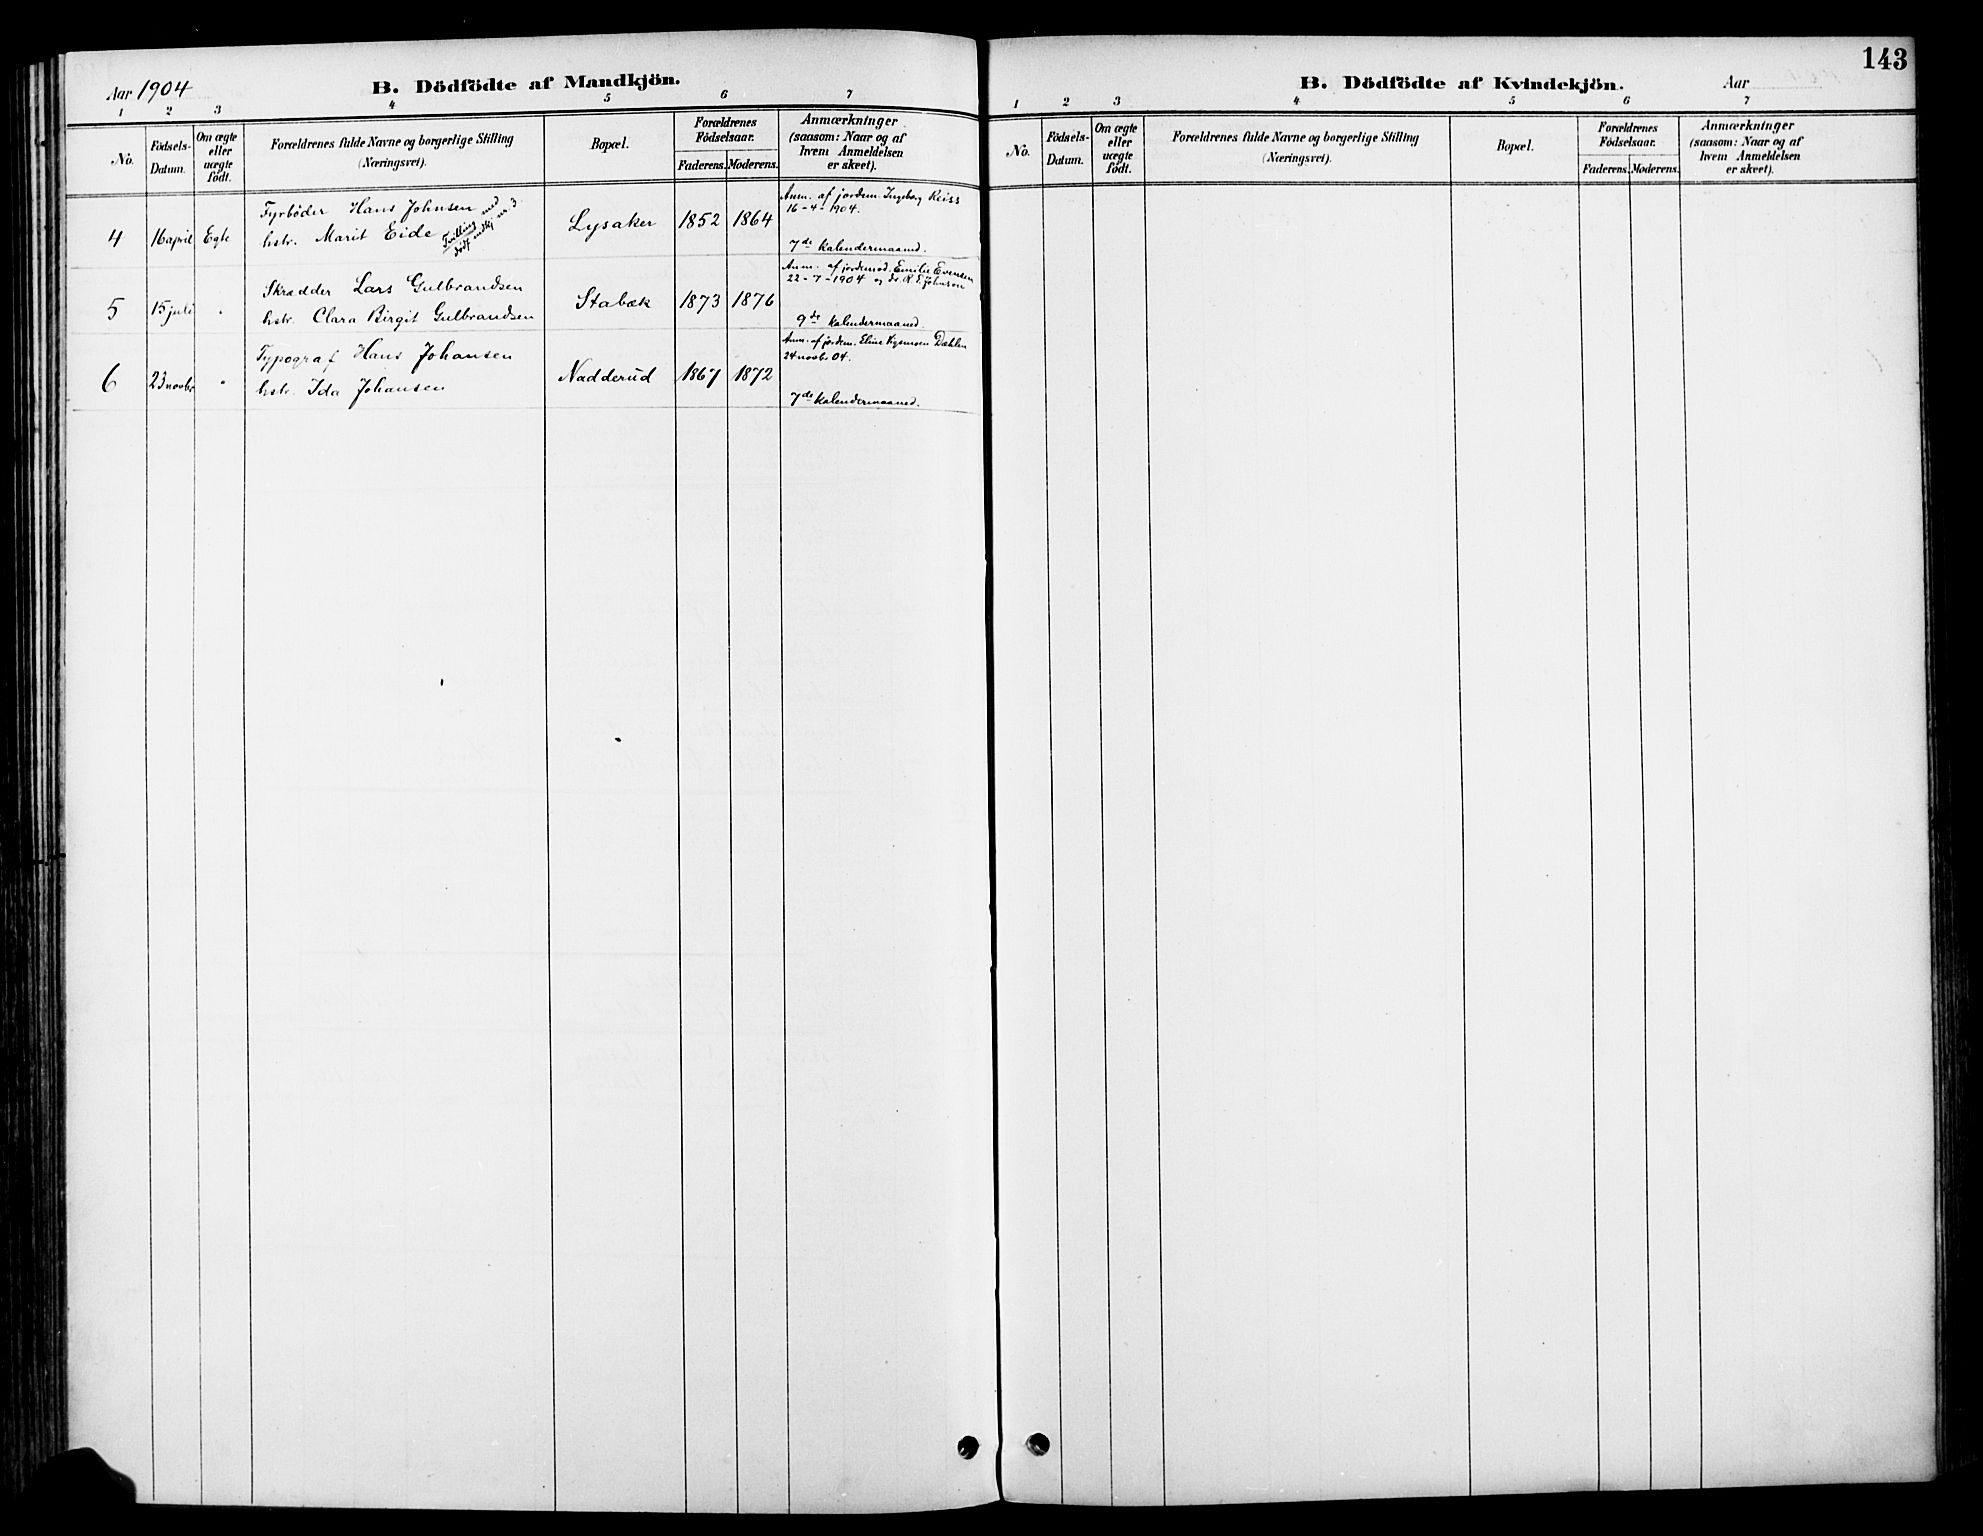 Aar 1904
B. Dödfödte af Mandkjön.
1 2 3 4 5 6 7
No.
Födsels-Datum.
Om ægte eller uægte födt.
Forældrenes fulde Navne og borgerlige Stilling (Næringsvei).
Bopæl.
Forældrenes Födselsaar.
Faderens. Moderens.
Anmærkninger (saasom: Naar og af hvem Anmeldelsen er skeet).
4 16 april Egte
Fyrbøder Hans Johnsen
hstr. Marit Eide
Tvilling med dødf. mdkj nr. 3.
Lysaker 1852 1864
Anm. af jordem. Ingeborg Reiss
16-4-1904.
7de kalendermaaned.
5 15 juli "
Skrædder Lars Gulbrandsen
hstr. Clara Birgit Gulbrandsen
Stabæk 1873 1876
Anm. af jordemod. Emilie Evensen
22-7-1904 og dr. R. E. Johnson
9de kalendermaaned.
6 23 novbr "
Typograf Hans Johansen
hstr. Ida Johansen
Nadderud 1867 1872
Anm. af jordem. Eline Dæhlen
24 novbr 04.
7de kalendermaaned.
143
B. Dödfödte af Kvindekjön.
Aar
1 2 3 4 5 6 7
No.
Födsels-Datum.
Om ægte eller uægte födt.
Forældrenes fulde Navne og borgerlige Stilling (Næringsvei).
Bopæl.
Forældrenes Födselsaar.
Faderens. Moderens.
Anmærkninger (saasom: Naar og af hvem Anmeldelsen er skeet).